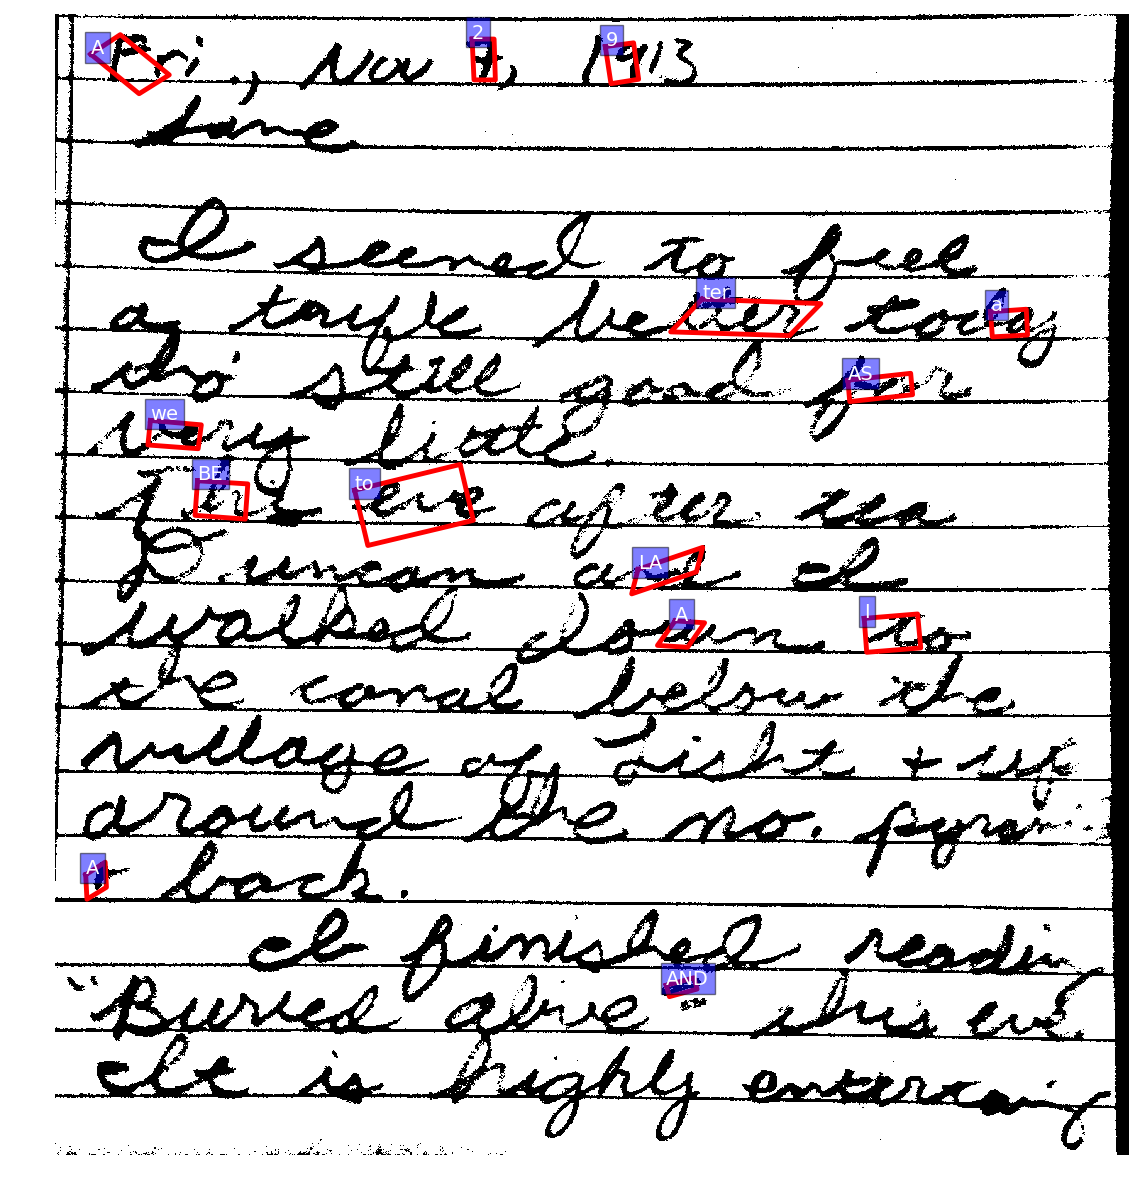 Fri., Nov 7, 1913
Same
I seemed to feel
a trifle better today
tho' still good for
very little.
This eve after tea
Duncan and I
walked down to
the canal below the
village of Lisht + up
around the no.
+ back.
I finished reading
"Buried alive" this eve.
It is highly entertaining